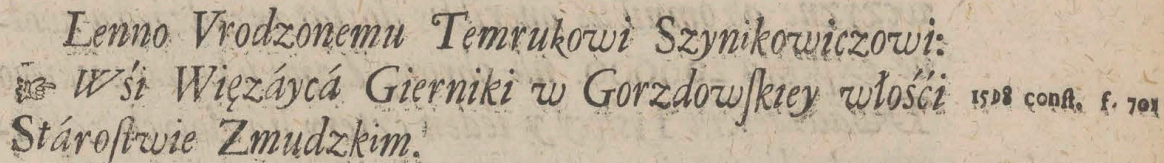 Lenno Vrodzonemu Temrukowi Szynikowiczowi:
☞ Wśi Więzáycá Gierniki w Gorzdowſkiey włośći 1598 conſt. f. 701
Stároſtwie Zmudzkim.